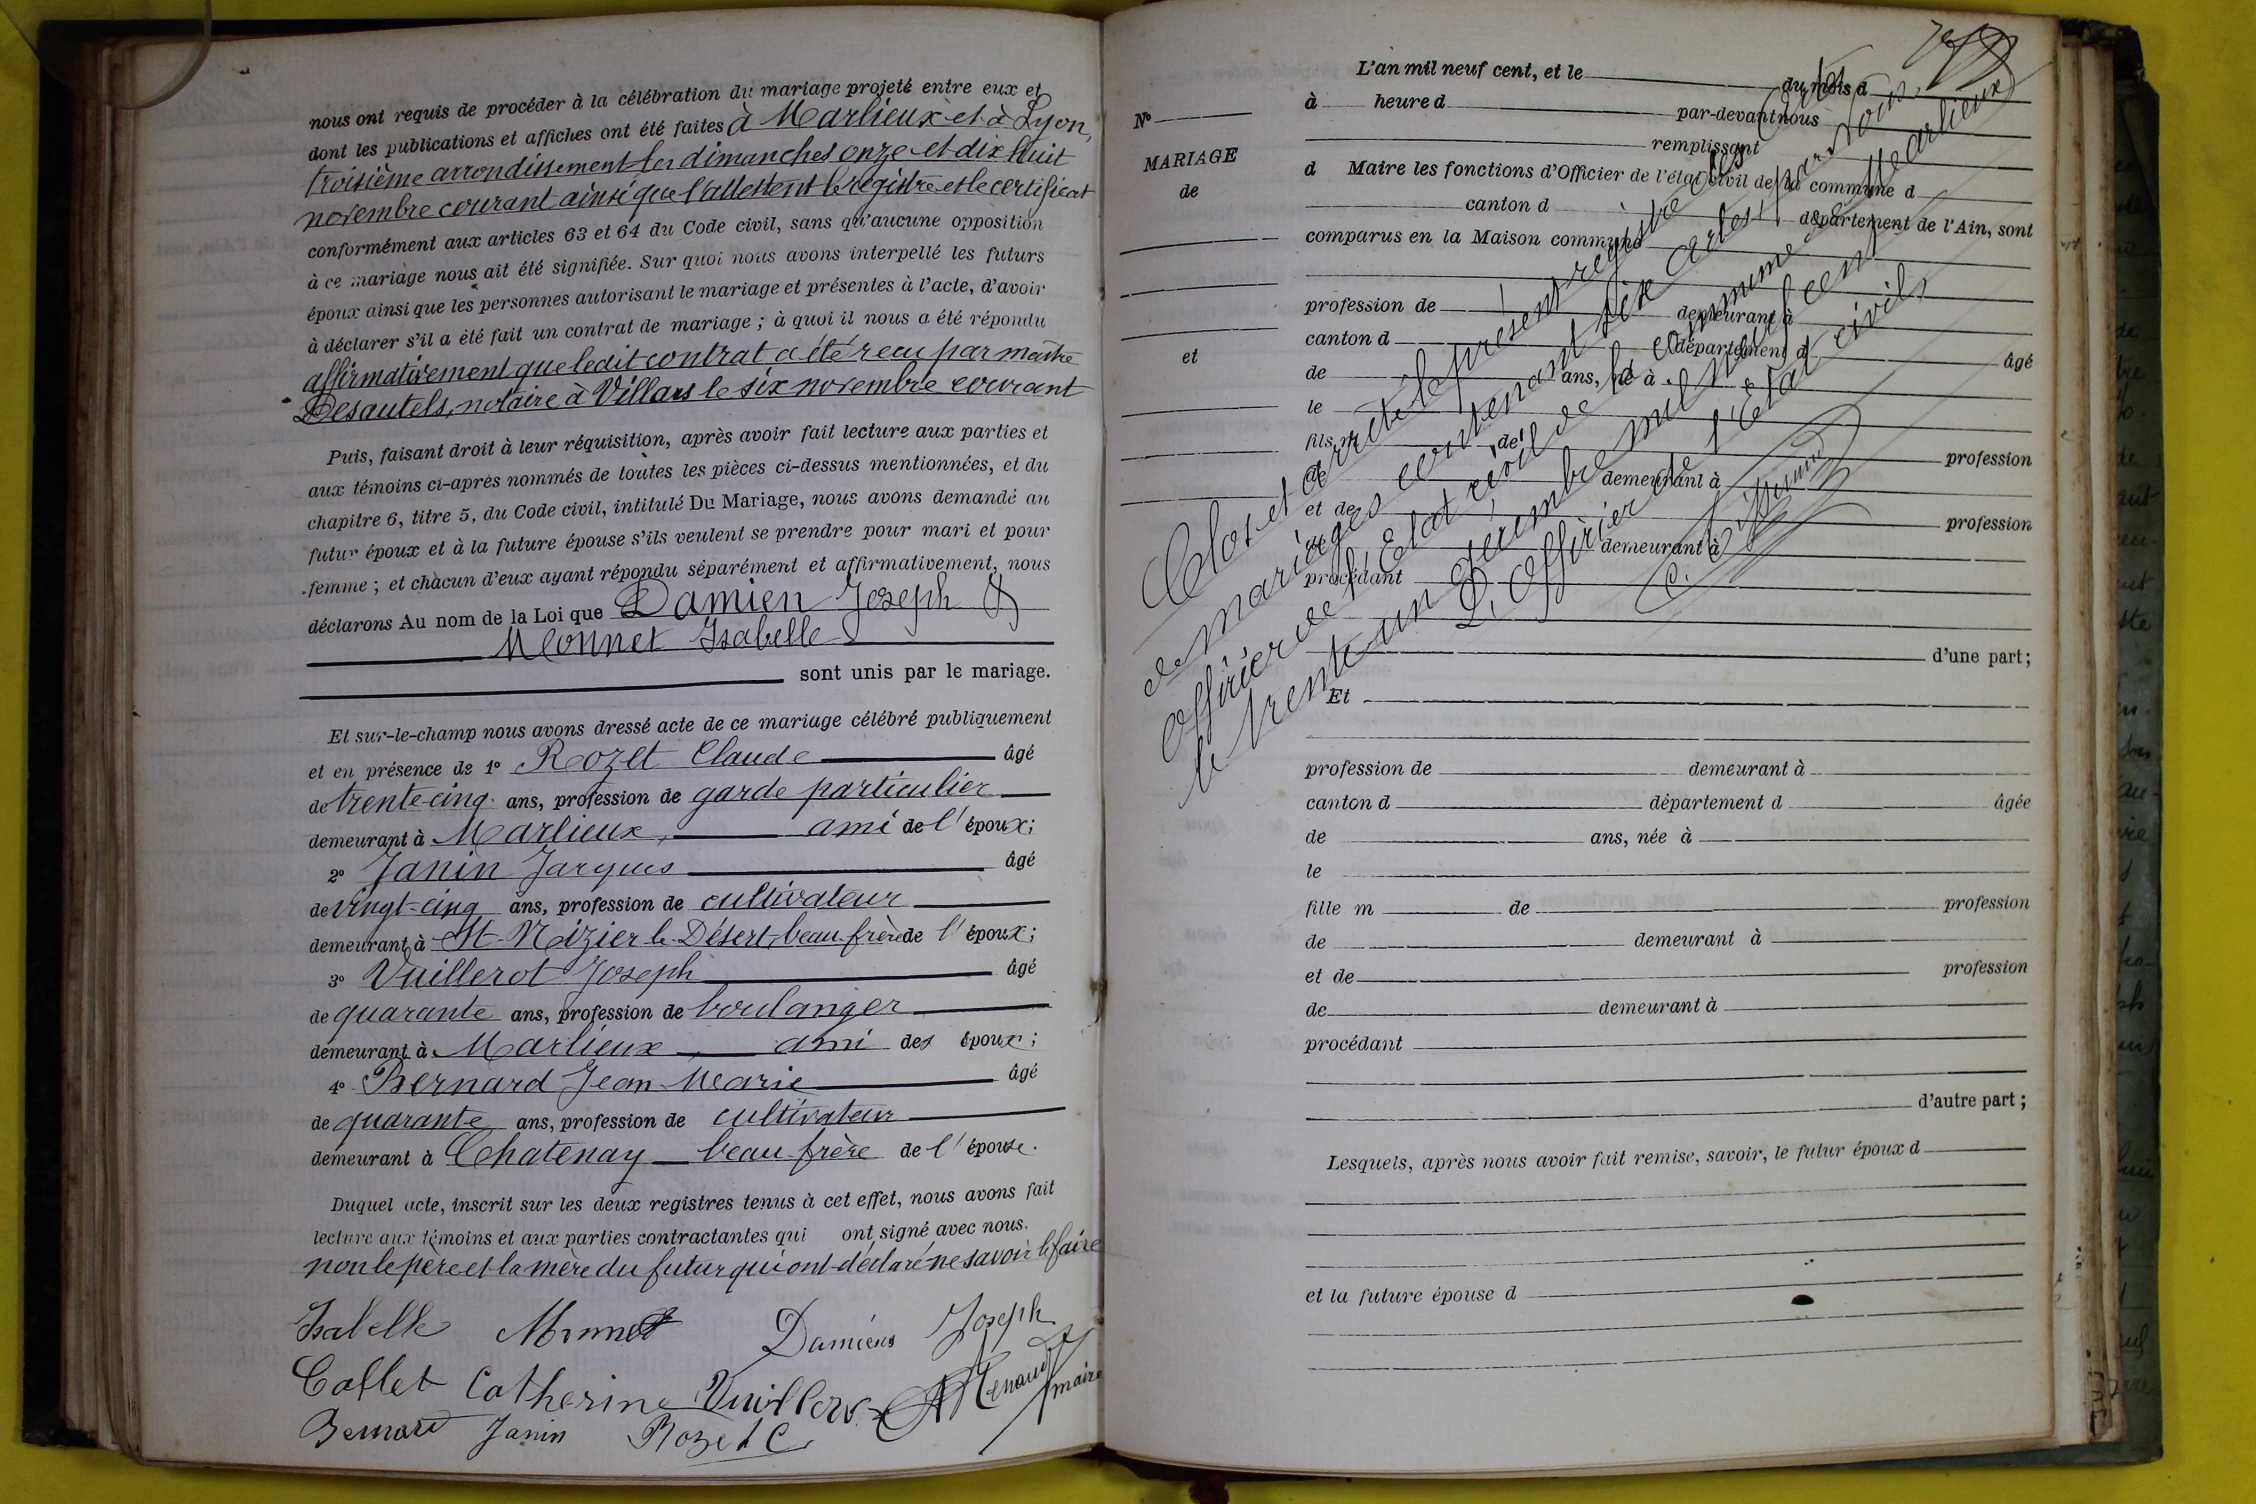 nous ont requis de procéder à la célébration du mariage projeté entre eux et
dont les publications et affiches ont été faites à Marlieux et à Lyon,
troisième arrondissement les dimanches onze et dix huit
novembre courant ainsi que l'attestent le registre et le certificat
conformément aux articles 63 et 64 du Code civil, sans qu'aucune opposition
à ce mariage nous ait été signifiée. Sur quoi nous avons interpellé les futurs
époux ainsi que les personnes autorisant le mariage et présentes à l'acte, d'avoir
à déclarer s'il a été fait un contrat de mariage ; à quoi il nous a été répondu
affirmativement que ledit contrat a été reçu par maître
Desautels, notaire à Villars le six novembre courant
Puis, faisant droit à leur réquisition, après avoir fait lecture aux parties et
aux témoins ci-après nommés de toutes les pièces ci-dessus mentionnées, et du
chapitre 6, titre 5, du Code civil, intitulé Du Mariage, nous avons demandé au
futur époux et à la future épouse s'ils veulent se prendre pour mari et pour
femme ; et chacun d'eux ayant répondu séparément et affirmativement, nous
déclarons Au nom de la Loi que Damien Joseph &
Monnet Isabelle
sont unis par le mariage.
Et sur-le-champ nous avons dressé acte de ce mariage célébré publiquement
et en présence de 1° Rozet Claude âgé
de trente-cinq ans, profession de garde particulier
demeurant à Marlieux, ami de l'époux;
2° Janin Jacques âgé
de vingt-cinq ans, profession de cultivateur
demeurant à St Nizier le Désert, beau frère de l'époux;
3° Vuillerot Joseph âgé
de quarante ans, profession de boulanger
demeurant à Marlieux, ami des époux;
4° Bernard Jean Marie âgé
de quarante ans, profession de cultivateur
demeurant à Chatenay beau-frère de l'épouse.
Duquel acte, inscrit sur les deux registres tenus à cet effet, nous avons fait
lecture aux témoins et aux parties contractantes qui ont signé avec nous.
non le père et la mère du futur qui ont déclaré ne savoir le faire
Isabelle Monnet Damiens Joseph
Collet Catherine Vuillero
maire
Bernard Janin Rozet C
L'an mil neuf cent, et le du mois d
à heure d par-devant nous
N° remplissant
MARIAGE
d Maire les fonctions d'Officier de l'état civil de la commune d
de
canton d département de l'Ain, sont
comparus en la Maison commune
profession de demeurant à
canton d département d âgé
et
de ans, né à
le
fils m de profession
de demeurant à
et de profession
de demeurant à
procédant
d'une part;
Clos et arrêté le présent registre des
de mariages contenant six actes, par nous,
officier de l'Etat civil de la commune de Marlieux
le trente un décembre mil neuf cent
L'Officier de l'état civil,
Et
profession de demeurant à
canton d département d âgée
de ans, née à
le
fille m de profession
de demeurant à
et de profession
de demeurant à
procédant
d'autre part ;
Lesquels, après nous avoir fait remise, savoir, le futur époux d
et la future épouse d